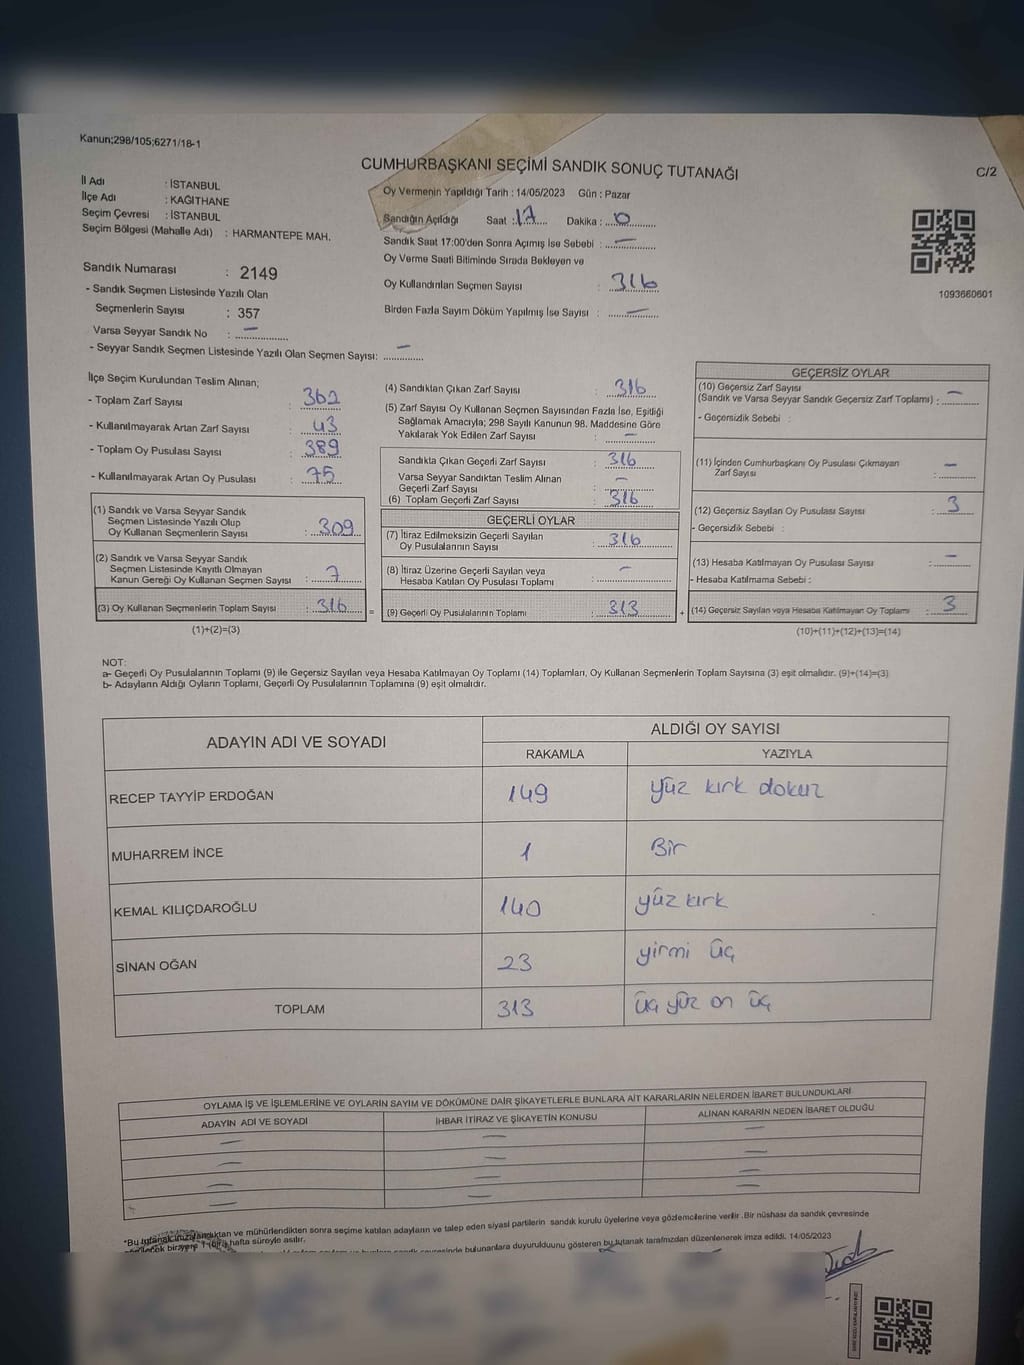 Kanun;298/105;6271/18-1
CUMHURBAŞKANI SEÇİMİ SANDIK SONUÇ TUTANAĞI
C/2
İl Adı : İSTANBUL
İlçe Adı : KAĞITHANE
Seçim Çevresi : İSTANBUL
Seçim Bölgesi (Mahalle Adı) : HARMANTEPE MAH.
Sandık Numarası : 2149
- Sandık Seçmen Listesinde Yazılı Olan
Seçmenlerin Sayısı : 357
Varsa Seyyar Sandık No : —
- Seyyar Sandık Seçmen Listesinde Yazılı Olan Seçmen Sayısı: —
Oy Vermenin Yapıldığı Tarih : 14/05/2023 Gün : Pazar
Sandığın Açıldığı Saat : 17 Dakika : 0
Sandık Saat 17:00'den Sonra Açımış İse Sebebi : —
Oy Verme Saati Bitiminde Sırada Bekleyen ve
Oy Kullandırılan Seçmen Sayısı : 316
Birden Fazla Sayım Döküm Yapılmış İse Sayısı : —
1093660601
İlçe Seçim Kurulundan Teslim Alınan;
- Toplam Zarf Sayısı : 362
- Kullanılmayarak Artan Zarf Sayısı : 43
- Toplam Oy Pusulası Sayısı : 389
- Kullanılmayarak Artan Oy Pusulası : 75
(1) Sandık ve Varsa Seyyar Sandık
Seçmen Listesinde Yazılı Olup
Oy Kullanan Seçmenlerin Sayısı : 309
(2) Sandık ve Varsa Seyyar Sandık
Seçmen Listesinde Kayıtlı Olmayan
Kanun Gereği Oy Kullanan Seçmen Sayısı : 7
(3) Oy Kullanan Seçmenlerin Toplam Sayısı : 316 =
(1)+(2)=(3)
(4) Sandıktan Çıkan Zarf Sayısı : 316
(5) Zarf Sayısı Oy Kullanan Seçmen Sayısından Fazla İse, Eşitliği
Sağlamak Amacıyla; 298 Sayılı Kanunun 98. Maddesine Göre
Yakılarak Yok Edilen Zarf Sayısı : —
Sandıkta Çıkan Geçerli Zarf Sayısı : 316
Varsa Seyyar Sandıktan Teslim Alınan
Geçerli Zarf Sayısı : —
(6) Toplam Geçerli Zarf Sayısı : 316
GEÇERLİ OYLAR
(7) İtiraz Edilmeksizin Geçerli Sayılan
Oy Pusulalarının Sayısı : 316
(8) İtiraz Üzerine Geçerli Sayılan veya
Hesaba Katılan Oy Pusulası Toplamı : —
(9) Geçerli Oy Pusulalarının Toplamı : 313 +
GEÇERSİZ OYLAR
(10) Geçersiz Zarf Sayısı
(Sandık ve Varsa Seyyar Sandık Geçersiz Zarf Toplamı) : —
- Geçersizlik Sebebi :
(11) İçinden Cumhurbaşkanı Oy Pusulası Çıkmayan
Zarf Sayısı : —
(12) Geçersiz Sayılan Oy Pusulası Sayısı : 3
- Geçersizlik Sebebi :
(13) Hesaba Katılmayan Oy Pusulası Sayısı : —
- Hesaba Katılmama Sebebi :
(14) Geçersiz Sayılan veya Hesaba Katılmayan Oy Toplamı : 3
(10)+(11)+(12)+(13)=(14)
NOT:
a- Geçerli Oy Pusulalarının Toplamı (9) ile Geçersiz Sayılan veya Hesaba Katılmayan Oy Toplamı (14) Toplamları, Oy Kullanan Seçmenlerin Toplam Sayısına (3) eşit olmalıdır. (9)+(14)=(3)
b- Adayların Aldığı Oyların Toplamı, Geçerli Oy Pusulalarının Toplamına (9) eşit olmalıdır.
ADAYIN ADI VE SOYADI
ALDIĞI OY SAYISI
RAKAMLA YAZIYLA
RECEP TAYYİP ERDOĞAN 149 yüz kırk dokuz
MUHARREM İNCE 1 Bir
KEMAL KILIÇDAROĞLU 140 yüz kırk
SİNAN OĞAN 23 yirmi üç
TOPLAM 313 üç yüz on üç
OYLAMA İŞ VE İŞLEMLERİNE VE OYLARIN SAYIM VE DÖKÜMÜNE DAİR ŞİKAYETLERLE BUNLARA AİT KARARLARIN NELERDEN İBARET BULUNDUKLARI
ADAYIN ADI VE SOYADI İHBAR İTİRAZ VE ŞİKAYETİN KONUSU ALINAN KARARIN NEDEN İBARET OLDUĞU
— — —
— — —
— — —
— — —
*Bu tutanak imzalandıktan ve mühürlendikten sonra seçime katılan adayların ve talep eden siyasi partilerin sandık kurulu üyelerine veya gözlemcilerine verilir .Bir nüshası da sandık çevresinde
bir yere 1 (bir) hafta süreyle asılır.
bulunanlara duyurulduunu gösteren bu tutanak tarafımızdan düzenlenerek imza edildi. 14/05/2023